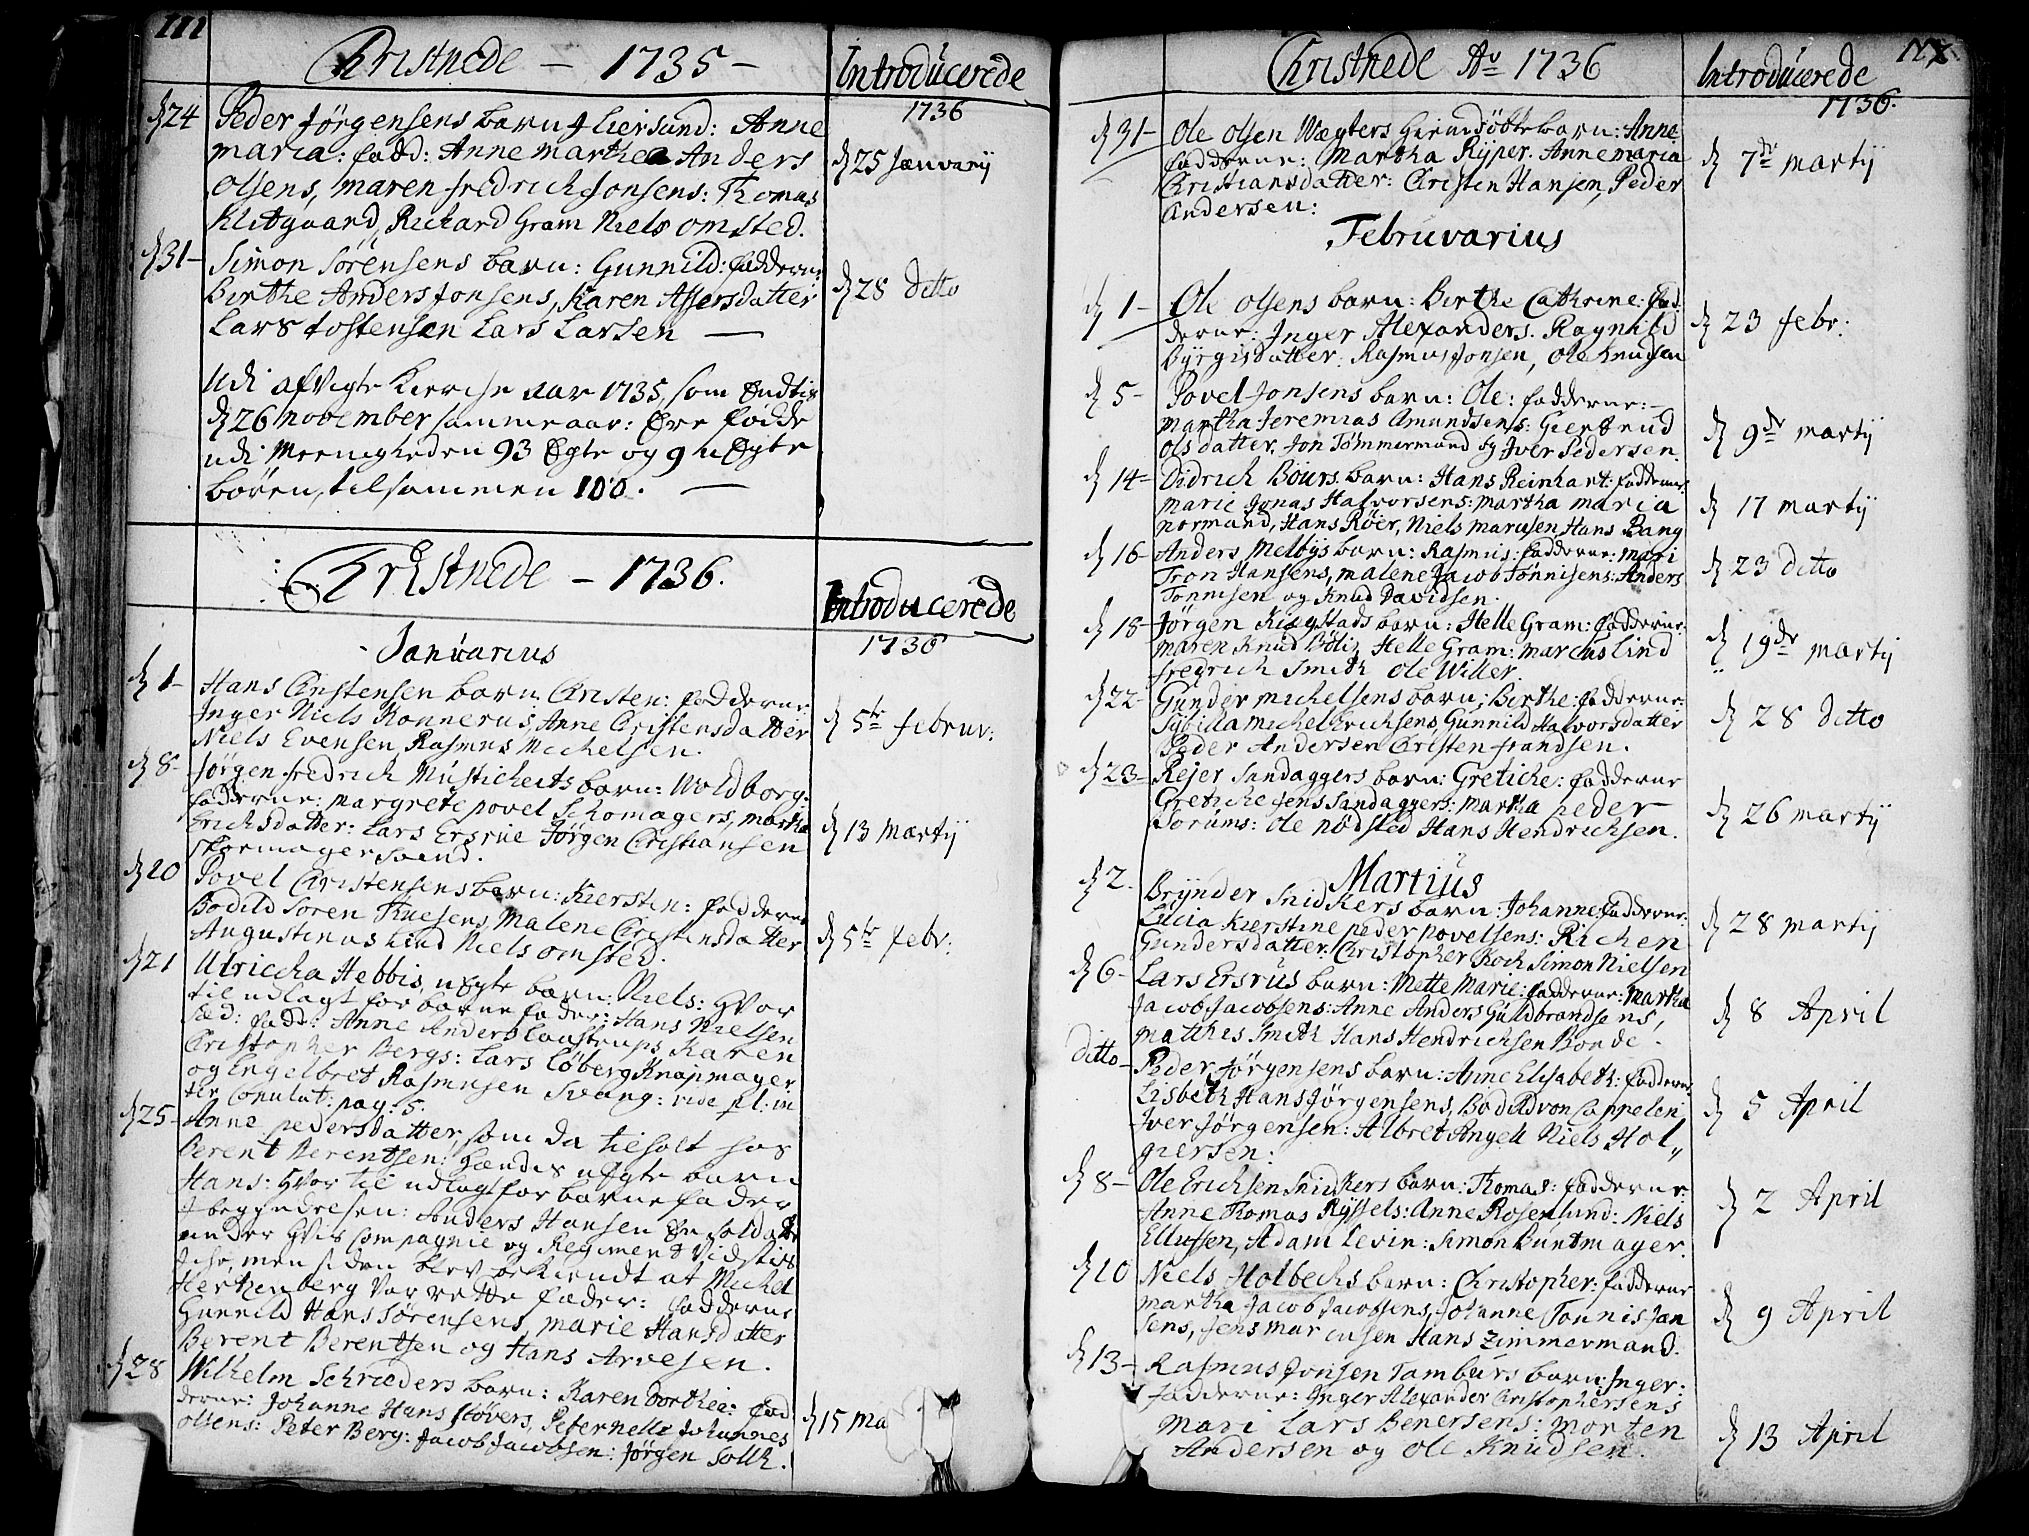 111
Christnede – 1735 –
Introducerede
1736
d 24 Peder Jørgensens barn Anne
maria: fadd: Anne marthea Anders
Olsens, maren fredrich Jonsens: Thomas
Klitgaard, Richard Gram Niels omsted.
d 25 Januarij
d 31 – Simon Sørensens barn: Gunnild: fadderne
Birthe Anders Jonsens, Karen Assersdatter
Lars Jostensen Lars Larsen —
d 28 ditto
Udi afvigte Kierche aar 1735, som Endtis
d 26 November samme aar: Ere fødde
udi Meenigheden 93 Egte og 9 uEgte
børen, tilsammen 100. —
Christnede – 1736.
Introducerede
1736
Januarius
d 1 – Hans Christensen barn Christen: fadderne
Inger Niels Konnerus, Anne Christensdatter
Niels Evensen Rasmus Michelsen.
d 5te februv:
d 8 – Jørgen fredrich Musticheits barn: Woldborg:
fadderne: margrete povel Schomagers, martha
Erichsdatter: Lars Ersrue Jørgen Christiansen
skormager svend.
d 13 Martij
d 20 Povel Christensens barn: Kiersten: fadderne
Bodild Soren Thuesens, Malene Christensdatter
Augustinus Lind Niels omsted.
d 5te febr:
d 21 Ulriccha Hebbis, uEgte barn: Niels: Hvor
til udlagt for barnefader: Hans Nielsen
fadd: Anne Anders Caustrups, Karen
Christopher Bergs: Lars Løberg Knapmager
og Engelbret Rasmusen Svang: vide
pag: 5.
d 25 – Anne pedersdatter, som da tilholt hos
Berent Berentsen: hændes uEgte barn
Hans: Hvor til udlagt for barnefader
I begyndelsen: Anders Hansen En soldat
under Compagnie og Regiment
men siden blev bekiendt at Michel
Hertzenberg Var rette fader: fadderne
Gunnild Hans Sørensens, Marie Hansdatter
Berent Berentsen og Hans Arvesen.
d 28 Wilhelm Schrøders barn: Karen Dorthea: fad
derne: Johanne Hans støvers, Peternelle Johannes
olsens: Peter Berg: Jacob Jacobsen: Jørgen Solth.
d 15 Ma
Christnede Ao 1736
Introducerede
1736.
d 31 – Ole Olsen Wægters barn: Anne
fadderne: Martha Ryper. Anne maria
Christiansdatter: Christen Hansen, Peder
Andersen:
d 7de martij
Februvarius
d 1 – Ole Olsens barn: Birthe Cathrine: fad
derne: Inger Alexanders. Ragnild
Byrgisdatter: Rasmus Jonsen, Ole Knudsen
d 23 febr:
d 5 – Povel Jonsens barn: Ole: fadderne: –
Martha Jeremias Amundsens: Giertrud
Olsdatter. Jon Tømmermand og Iver Pedersen.
d 9de martij
d 14 – Didrich Bøurs barn: Hans Reinhart: fadderne:
Marie Jonas Halvorsens: Martha maria
normand, Hans Røer, Niels marcusen, Hans Bang
d 17 martij
d 16 – Anders Melbys barn: Rasmus: fadderne: Mari
Tron Hansens, malene Jacob Tønnisens: Anders
Tønnisen og Knud Davidsen.
d 23 ditto
d 18 – Jørgen Ringstads barn: Helle Gram: fadderne:
maren Knud Bøliz Helle Gram: marcus Lind
fredrich Smith Ole Willer.
d 19de martij
d 22 – Gunder Michelsens barn: Birthe: fadderne:
Sybilla Michel Erichsens, Gunnild Halvorsdatter
Peder Andersen Christen frandsen.
d 28 ditto
d 23 – Rejer Sandaggers barn: Gretiche: fadderne
Gretiche Jens Sandaggers: Martha peder
Sorums: Ole nødsted Hans Hendrichsen.
d 26 martij
Martius
d 2 – Brynder Snidkers barn: Johanne: fadderne:
Lucia Kierstine peder povelsens: Richen
Gundersdatter: Christopher Koch Simon Nielsen
d 28 martij
d 6 – Lars Ersrus barn: Mette Marie: fadderne: Martha
Jacob Jacobsens: Anne Anders Guldbrandsens,
Matthis Smith Hans Hendrichsen Bonde.
d 8 April
ditto – Peder Jørgensens barn: Anne Elisabeth: fadderne
Lisbeth Hans Jørgensens, Bodild von Cappelen
Iver Jørgensen: Albret Angell Niels Hol,,
giersen:
d 5 April
d 8 – Ole Erichsen Snidkers barn: Thomas: fadderne:
Anne Thomas Ryssels: Anne Rosenlund: Niels
Ellussen, Adam Levin: Simon Buntmager.
d 2 April
d 10 Niels Holbechs barn: Christopher: fadderne
Martha Jacob Jacobsens, Johanne Tønnis Jan
sens, Jens Marcusen Hans Zimmermand.
d 9 April
d 13 – Rasmus Jonsen Tamburs barn: Inger:
fadderne: Inger Alexander Christophersens
Mari Lars Benersens: Morten
Andersen og Ole Knudsen.
d 13 April